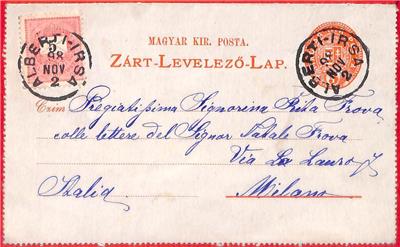 ALBERTI-IRSA
98
NOV
2
ALBERTI-IRSA
98
NOV
2
MAGYAR KIR. POSTA.
ZÁRT-LEVELEZŐ-LAP.
Czím Pregiatissima Signorina Rita Frova
colle lettere del Signor Natale Frova
Via La
Italia Milano